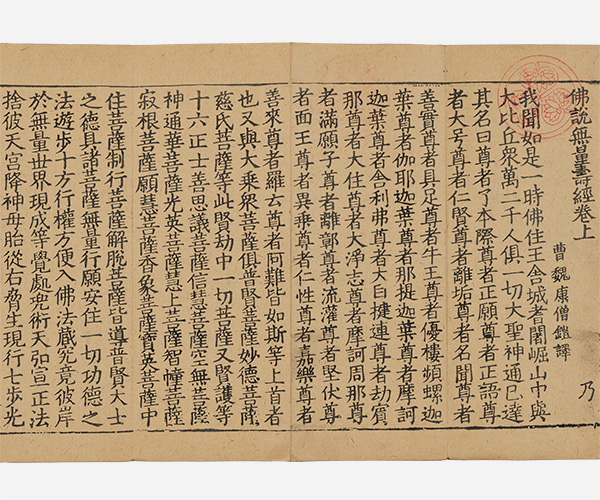 佛說無量壽經卷上
曹魏康僧鎧譯 乃
我聞如是一時佛住王舍城耆闍崛山中與
大比丘衆萬二千人俱一切大聖神通已達
其名曰尊者了本際尊者正願尊者正語尊
者大号尊者仁賢尊者離垢尊者名聞尊者
善實尊者具足尊者牛王尊者優樓頻螺迦
葉尊者伽耶迦葉尊者那提迦葉尊者摩訶
迦葉尊者舍利弗尊者大目揵連尊者劫賓
那尊者大住尊者大淨志尊者摩訶周那尊
者滿願子尊者離鄣尊者流灌尊者堅伏尊
者面王尊者異乘尊者仁性尊者嘉樂尊者
善來尊者羅云尊者阿難皆如斯等上首者
也又與大乘衆菩薩俱普賢菩薩妙德菩薩
慈氏菩薩等此賢劫中一切菩薩又賢護等
十六正士善思議菩薩信慧菩薩空無菩薩
神通華菩薩光英菩薩慧上菩薩智幢菩薩
寂根菩薩願慧菩薩香象菩薩寶英菩薩中
住菩薩制行菩薩解脫菩薩皆遵普賢大士
之德具諸菩薩無量行願安住一切功德之
法遊步十方行權方便入佛法藏究竟彼岸
於無量世界現成等覺處兜術天弘宣正法
捨彼天宮降神母胎從右脅生現行七步光